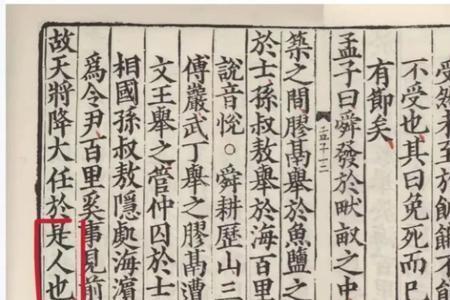 受然未至於飢餓不
不受也其曰免死而已
有節矣
孟子曰舜發於畎畝之中
築之間膠鬲舉於魚鹽之
於士孫叔敖舉於海百里
說音悅○舜耕歷山三
傅巖武丁舉之膠鬲遭
文王舉之管仲囚於士
相國孫叔敖隱處海濱
爲令尹百里奚事見前
故天將降大任於是人也